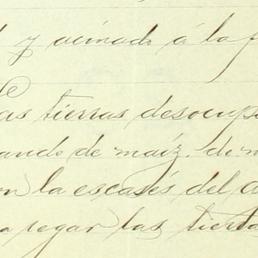 y acinado á la f
las tierras desocup
ando de maíz. de m
n la escasés del a
a regar las tierra